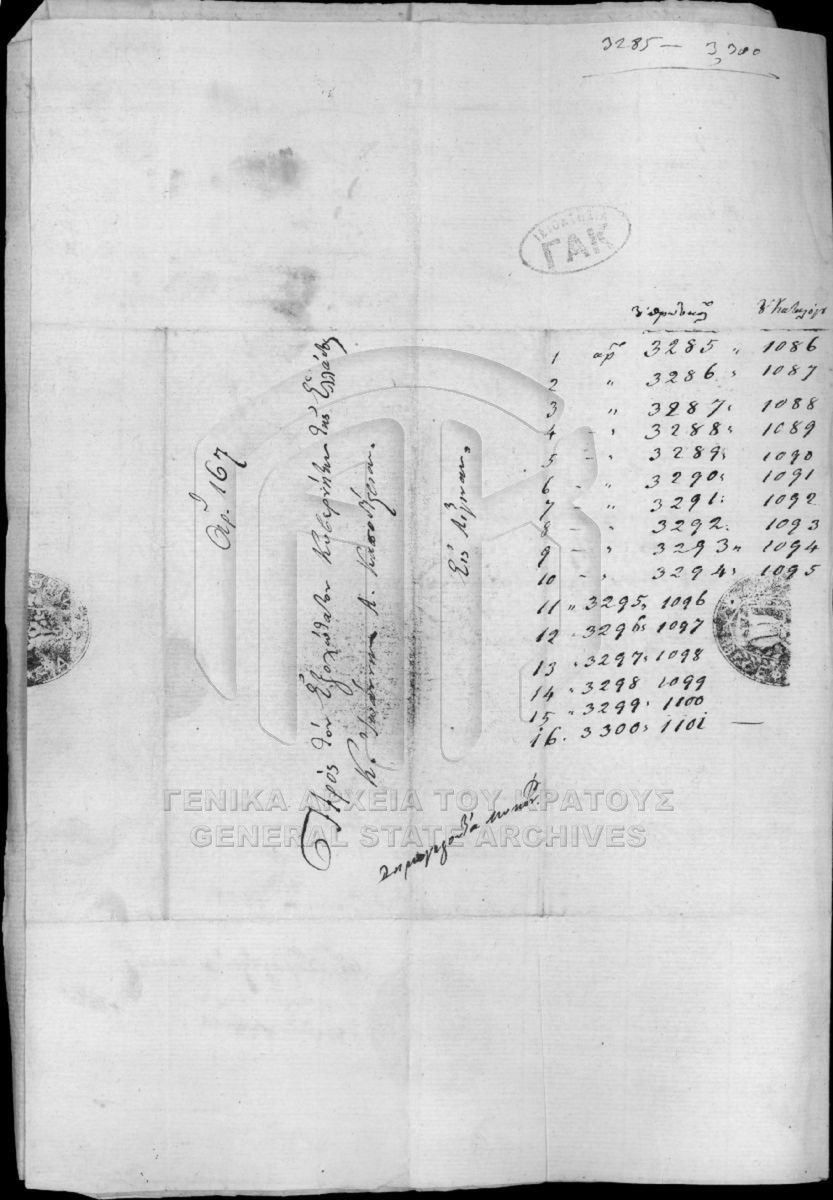 3285 — 3300
ΓΑΚ
1 αρ 3285 " 1086
2 " 3286 " 1087
3 " 3287 " 1088
4 " 3288 " 1089
5 " 3289 " 1090
6 " 3290 " 1091
7 " 3291 " 1092
8 " 3292 " 1093
9 " 3293 " 1094
10 " 3294 " 1095
11 " 3295 " 1096
12 " 3296 " 1097
13 " 3297 " 1098
14 " 3298 1099
15 " 3299 " 1100
16 . 3300 " 1101 —
Αρ. 167
Πρός τον Εξοχώτατον Κυβερνήτην της Ελλάδος
Κ. Ιωάννην Α. Καποδίστριαν.
Εις Αίγιναν.
ΓΕΝΙΚΑ ΑΡΧΕΙΑ ΤΟΥ ΚΡΑΤΟΥΣ
GENERAL STATE ARCHIVES